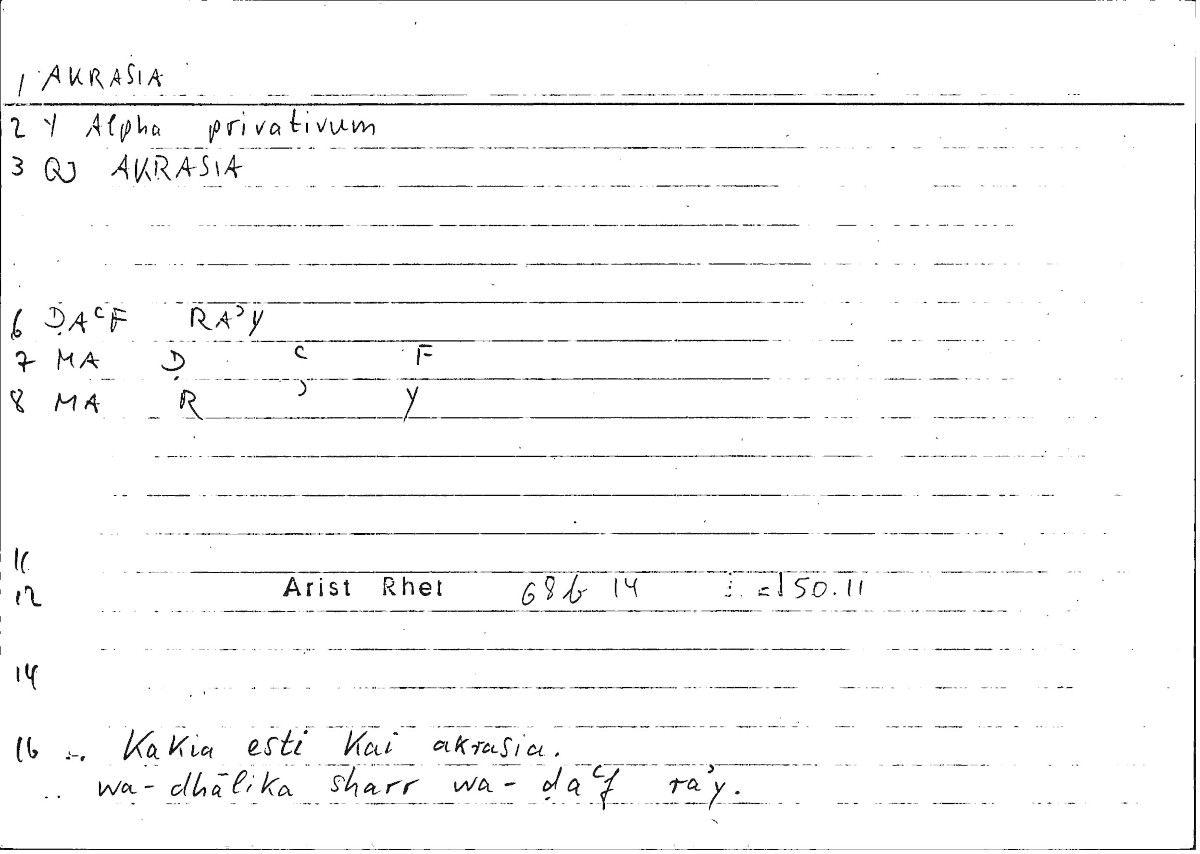 1 AKRASIA
2 Y Alpha privativum
3 QJ AKRASIA
6 ḌAᶜF RAʾY
7 MA Ḍ ᶜ F
8 MA R ʾ Y
11
12 Arist Rhet 68b 14 : = 150.11
14
16 :. Kakia esti kai akrasia.
.. wa-dhālika sharr wa-ḍaᶜf raʾy.